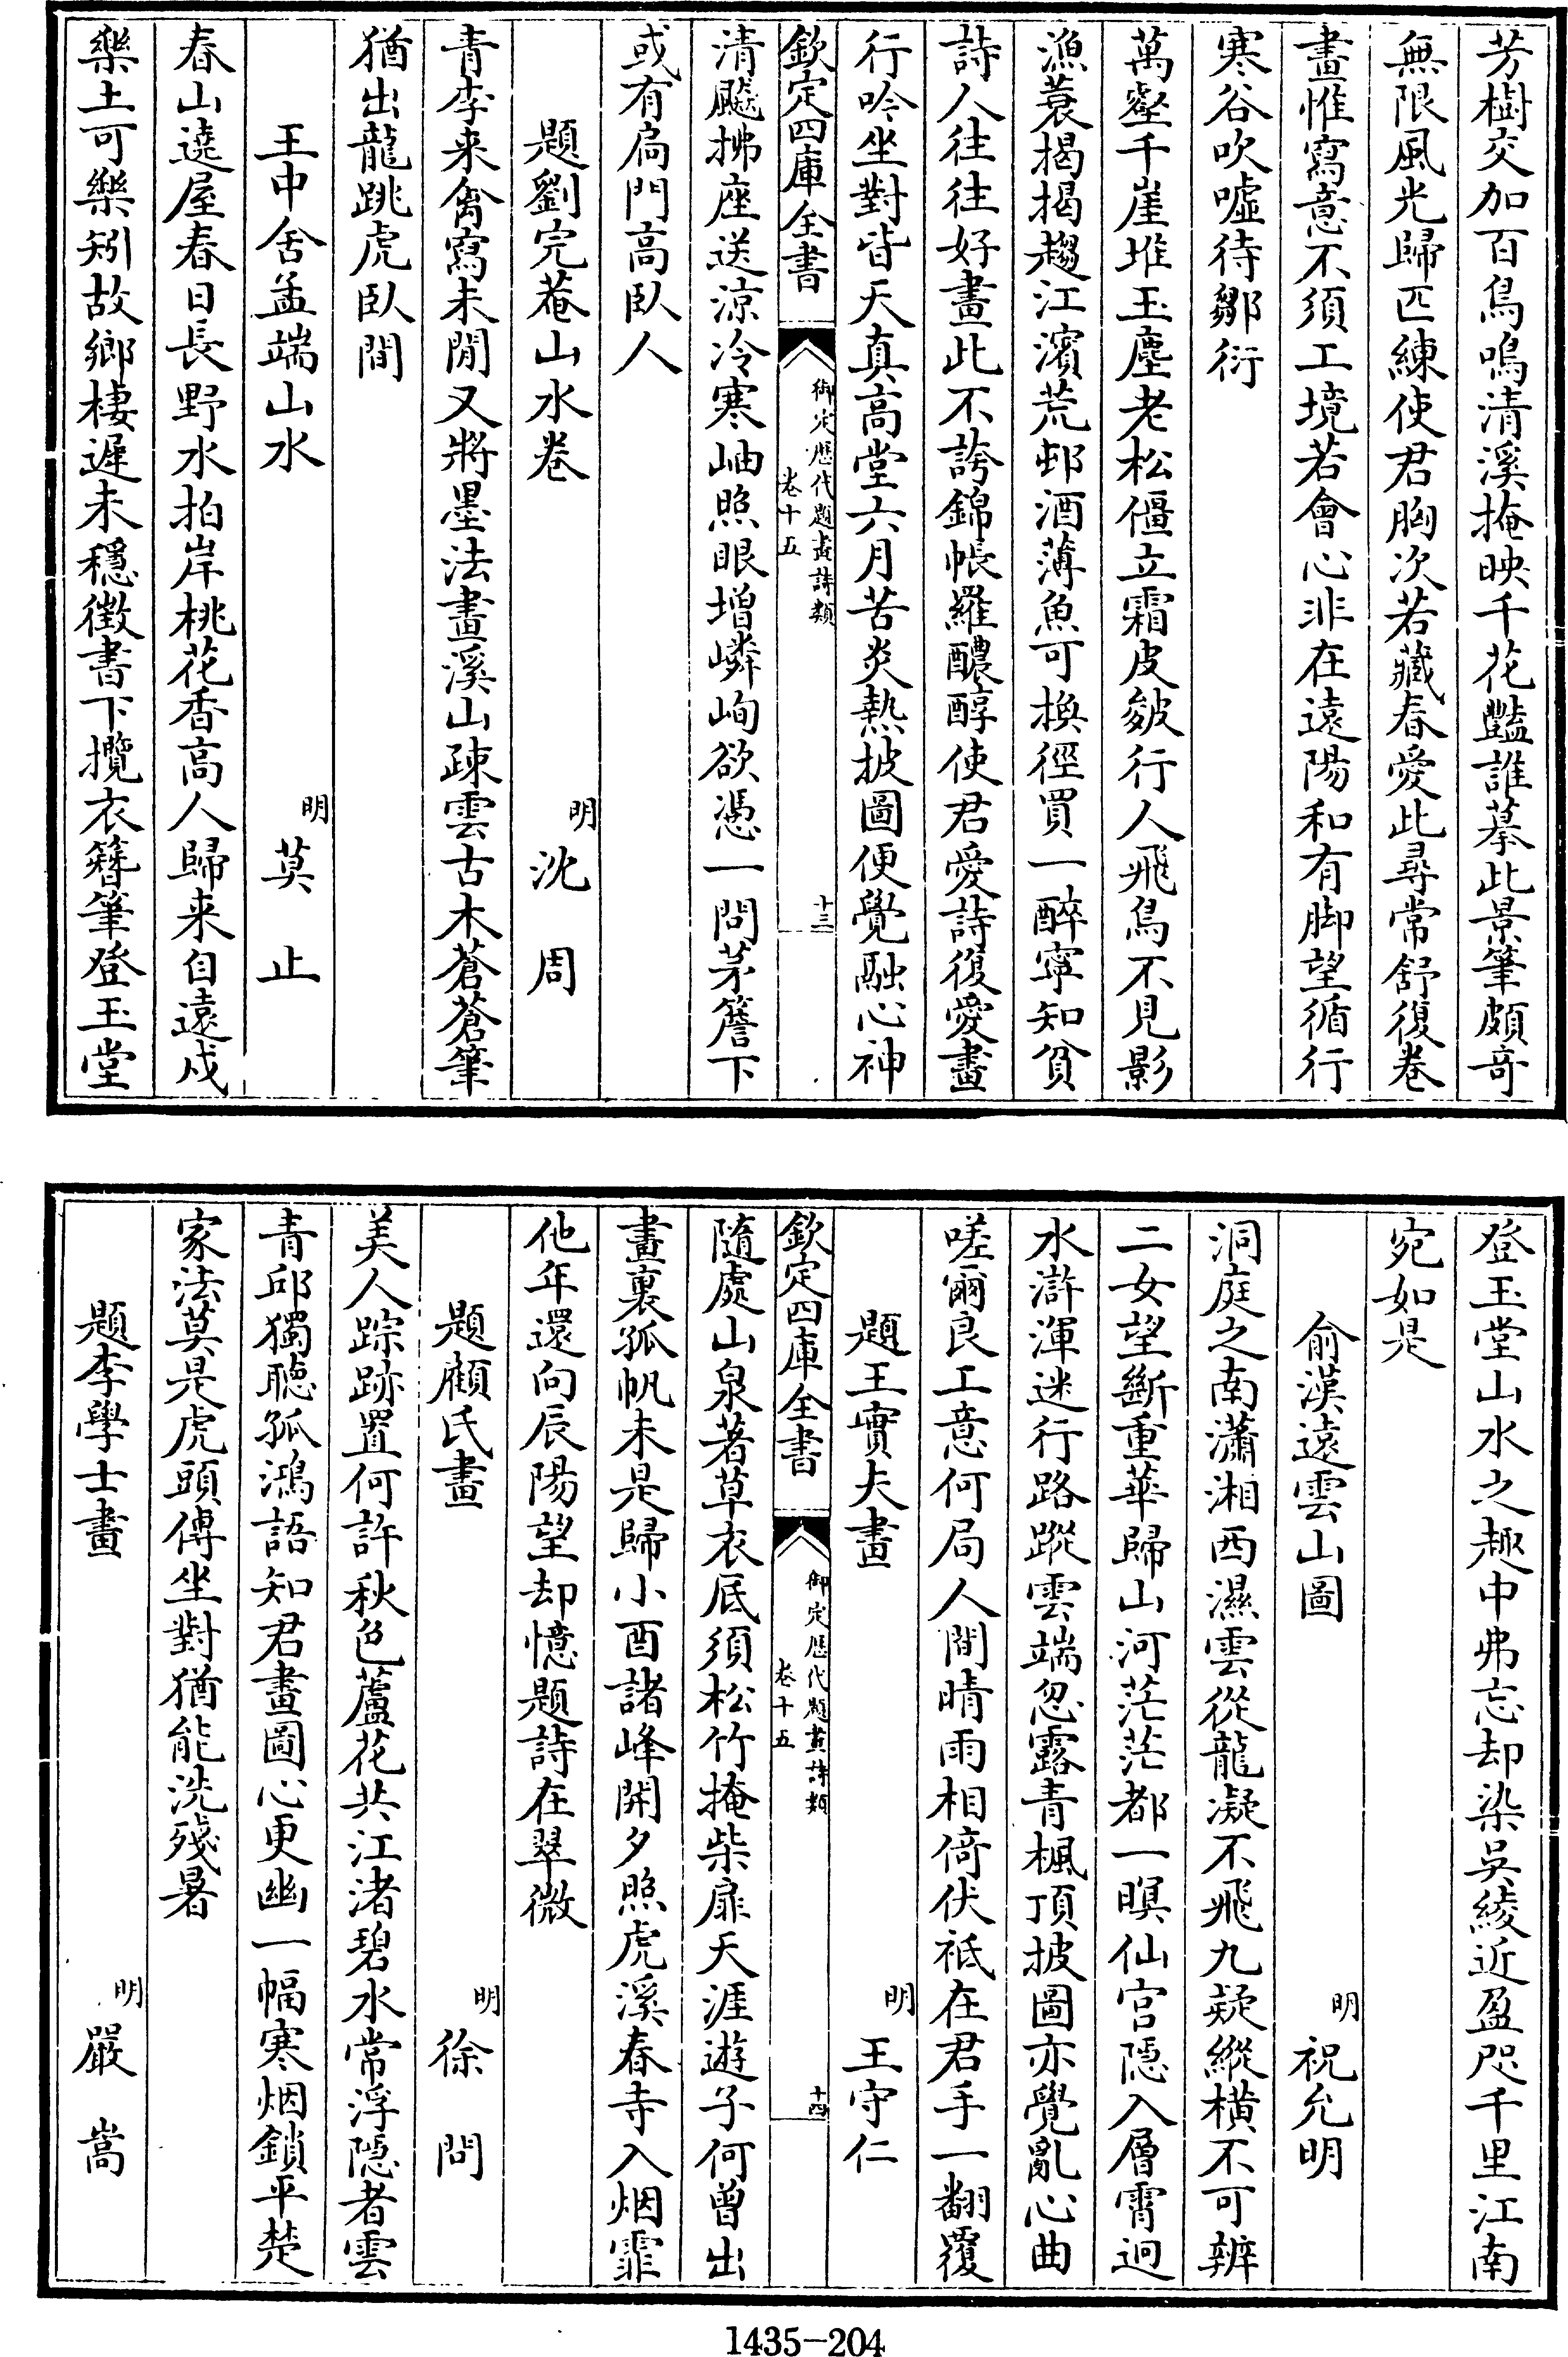 芳樹交加百鳥鳴清溪掩映千花豔誰摹此景筆頗奇
無限風光歸匹練使君胸次若藏春愛此尋常舒復卷
畫惟寫意不須工境若會心非在遠陽和有脚望循行
寒谷吹噓待鄒衍
萬壑千崖堆玉塵老松僵立霜皮皴行人飛鳥不見影
漁蓑揭揭趨江濱荒邨酒薄魚可換徑買一醉寧知貧
詩人往往好畫此不誇錦帳羅醲醇使君愛詩復愛畫
行吟坐對皆天真高堂六月苦炎熱披圖便覺融心神
欽定四庫全書
御定歷代題畫詩類
卷十五
十三
清飈拂座送涼冷寒岫照眼增嶙峋欲憑一問茅簷下
或有扃門高臥人
題劉完菴山水卷
明沈周
青李来禽寫未閒又將墨法畫溪山疎雲古木蒼蒼筆
猶出龍跳虎臥間
王中舍孟端山水
明莫止
春山遶屋春日長野水拍岸桃花香高人歸来自遠戍
樂土可樂矧故鄉棲遲未穩徵書下攬衣簪筆登玉堂
登玉堂山水之趣中弗忘却染吳綾近盈咫千里江南
宛如是
俞漢遠雲山圖
明祝允明
洞庭之南瀟湘西濕雲從龍凝不飛九疑縱橫不可辨
二女望斷重華歸山河茫茫都一暝仙宫隱入層霄迥
水滸渾迷行路蹤雲端忽露青楓頂披圖亦覺亂心曲
嗟爾良工意何局人間晴雨相倚伏祇在君手一翻覆
題王實夫畫
明王守仁
欽定四庫全書
御定歷代題畫詩類
卷十五
十四
隨處山泉著草衣底須松竹掩柴扉天涯遊子何曾出
畫裏孤帆未是歸小酉諸峰開夕照虎溪春寺入烟霏
他年還向辰陽望却憶題詩在翠微
題顧氏畫
明徐問
美人踪跡置何許秋色蘆花共江渚碧水常浮隠者雲
青邱獨聽孤鴻語知君畫圖心更幽一幅寒烟鎖平楚
家法莫是虎頭傳坐對猶能洗殘暑
題李學士畫
明嚴嵩
1435-204